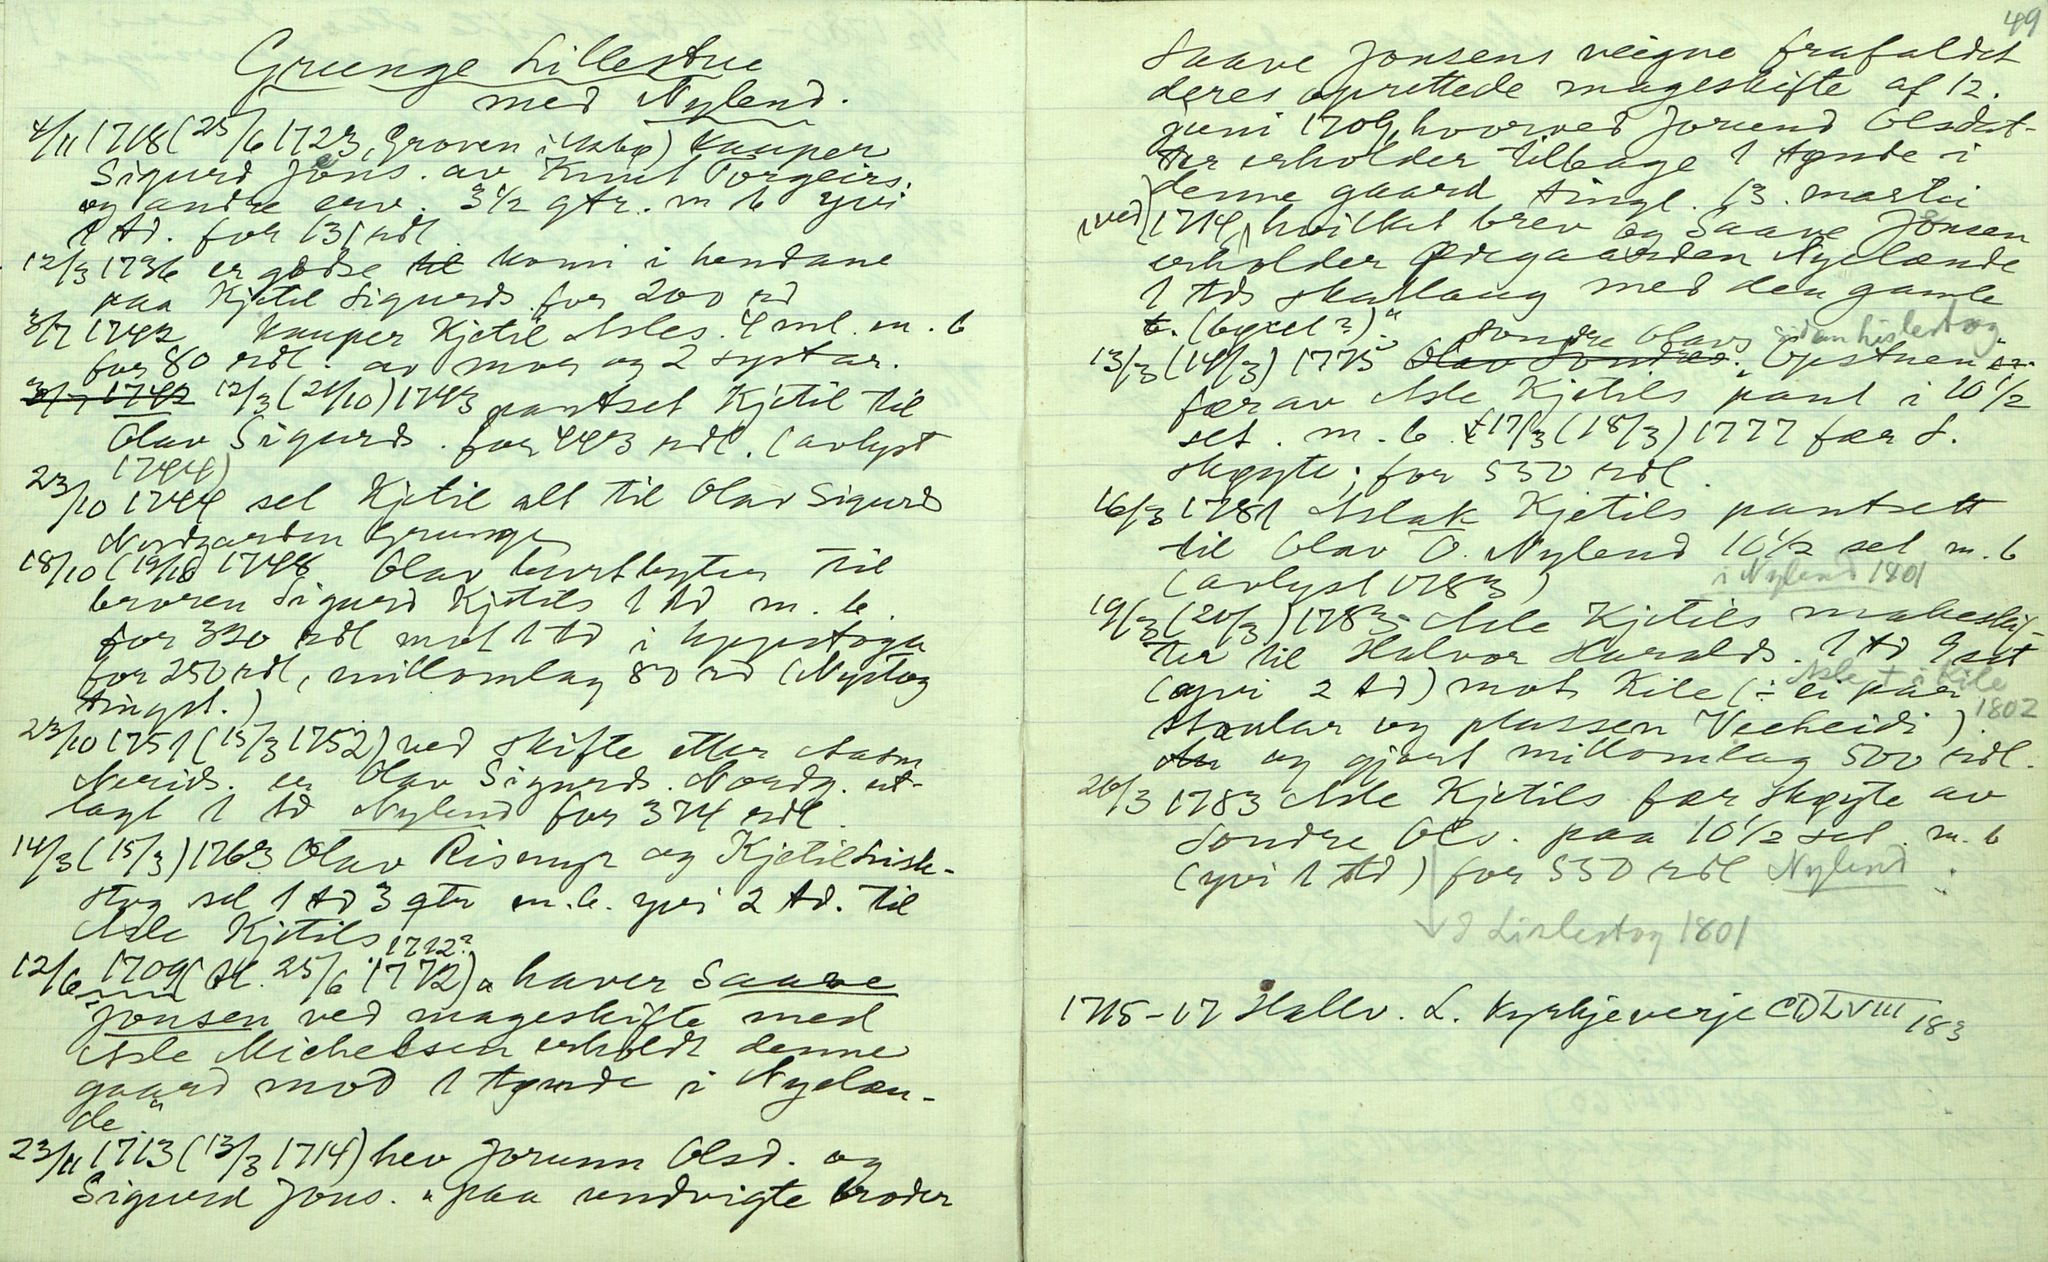 Grunge Lillestue
med Nylend.
4/11 1718 (25/6 1723, Groven i Usbø) kauper
Sigurd Jons. av Knut Torgeirs.
og andre erv. 3 1/2 qtr. m b yvi
1 td. for 131 rdl
12/3 1736 er godse til komi i hendane
paa Kjetil Sigurds. for 200 rd
3/7 1742 kauper Kjetil Asles. 4 ml. m. b
for 80 rdl. av mor og 2 systar.
3/7 1742 12/3 (21/10) 1743 pantset Kjetil til
Olav Sigurds. for 443 rdl. (avlyst
1744)
23/10 1744 sel Kjetil alt til Olav Sigurds
Nordgarden Grunge
18/10 (19/10) 1748 Olav burtbyter til
broren Sigurd Kjetils 1 td m. b.
for 320 rdl mot 1 td i Uppistoga
for 250 rdl, millomlag 80 rd (Nystog
tingst.)
23/10 1751 (15/3 1752) ved skifte etter Aasm
Nerids. er Olav Sigurds. Nordg. ut-
lagt 1 td Nylend for 374 rdl.
14/3 (15/3) 1763 Olav Rismyr og Kjetil Lisle-
stog sel 1 td 3 qtr m. b. yvi 2 td. til
Asle Kjetils.
1712?
12/6 1709 (tl. 25/6 1772) "haver Saave
Jonsen ved mageskifte med
Asle Michelsen erholdt denne
gaard mod 1 tønde i Nyelæn-
de"
23/11 1713 (13/3 1714) hev Jorunn Olsd. og
Sigurd Jons. "paa undvigte broder
49
Saave Jonsens veigne frafaldet
deres oprettede mageskifte af 12.
juni 1709, hvorved Jorund Olsdat-
ter erholder tilbage 1 tønde i
denne gaard tingl. 13. martii
(ved) 1714, hvilket brev og Saave Jonsen
erholder Ødegaarden Nyelænde
1 tds skyllaug med den gamle
b. (bygsel?)"
Sondre Olavs sidan Lislestog
13/3 (14/3) 1775 Olav Sondres. Upstuen
fær av Asle Kjetils pant i 10 1/2
set. m. b. 17/3 (18/3) 1777 fær S.
skøyte; for 550 rdl.
16/3 1781 Aslak Kjetils pantsett
til Olav O. Nylend 10 1/2 set m. b
(avlyst 1783) i Nylend 1801
19/3 (20/3) 1783 Asle Kjetils makeskif-
ter til Halvor Haralds. 1 td 9 set
(yvi 2 td) mot Kile (÷ ei paa
Asle † i Kile
1802
Haular og plassen Veeheidi)
og gjevt millomlag 500 rdl.
20/3 1783 Asle Kjetils fær skøyte av
Sondre Ols. paa 10 1/2 set. m. b
(yvi 1 td) for 550 rdl Nylend
I Lislestog 1801
1715-17 Hallv. L. kyrkjeverje CD LVIII 183